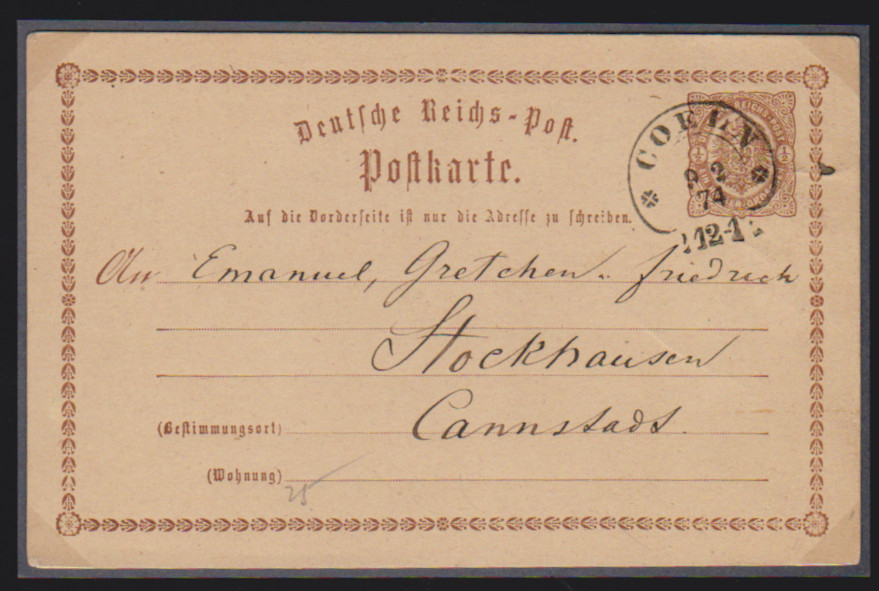 Deutsche Reichs-Post.
Postkarte.
Auf die Vorderseite ist nur die Adresse zu schreiben.
COELN
2 2
74
12-1
An Emanuel, Gretchen u. Friedrich
Stockhausen
(Bestimmungsort) Cannstadt.
(Wohnung)
25